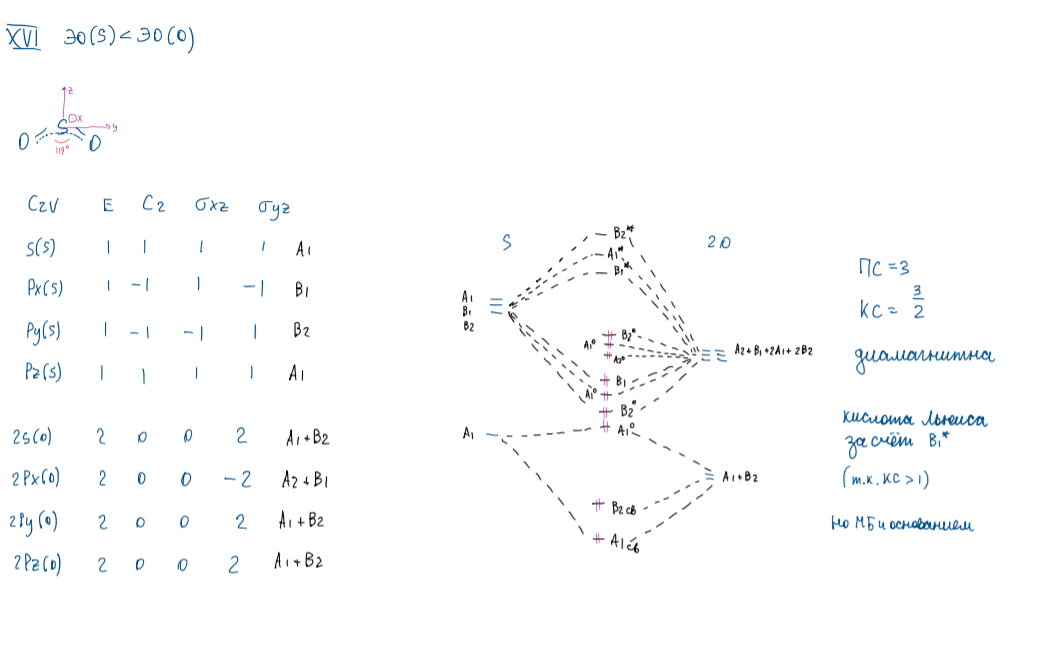 XVI ЭО(S) < ЭО(O)
z
S x
y
O O
119°
C2V E C2 σxz σyz
S(S) 1 1 1 1 A1
Px(S) 1 -1 1 -1 B1
Py(S) 1 -1 -1 1 B2
Pz(S) 1 1 1 1 A1
2S(O) 2 0 0 2 A1+B2
2Px(O) 2 0 0 -2 A2+B1
2Py(O) 2 0 0 2 A1+B2
2Pz(O) 2 0 0 2 A1+B2
S
2O
B2*
A1*
B1*
A1
B1
B2
B2°
A1°
A2°
A2+B1+2A1+2B2
B1
A1°
B2°
A1
A1°
A1+B2
B2св
A1св
ПС = 3
КС = 3/2
диамагнитна
кислота Льюиса
за счёт B1*
(т.к. КС > 1)
но МБ и основанием